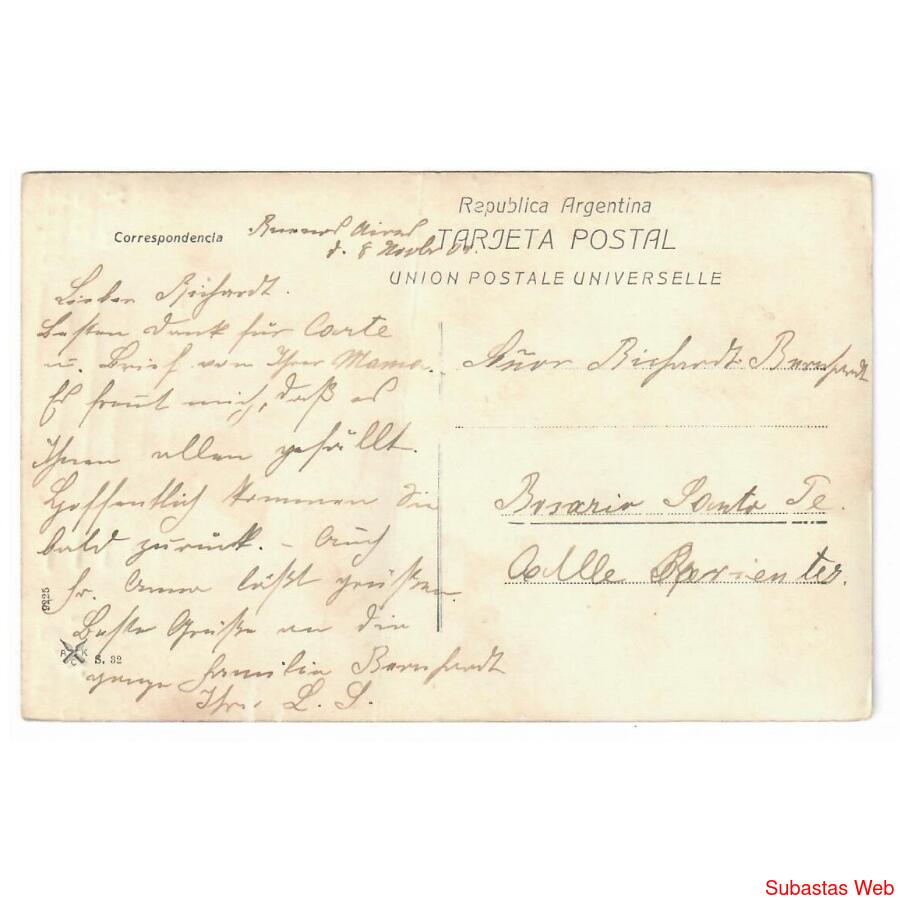 Republica Argentina
TARJETA POSTAL
UNION POSTALE UNIVERSELLE
Correspondencia
Buenos Aires
d. 8 Novbr
Lieber Richardt.
Besten Dank für Carte
u. Brief von Ihrer Mama.
Es freut mich, daß es
Ihnen allen gefällt.
Hoffentlich kommen Sie
bald zurück. – Auch
Fr. Anna läßt grüßen
Beste Grüße an die
ganze Familie Bernhardt
Ihre L. S.
Señor Richardt Bernhardt
Rosario Santa Fe.
Calle
9225
RKC
S. 32
Subastas Web